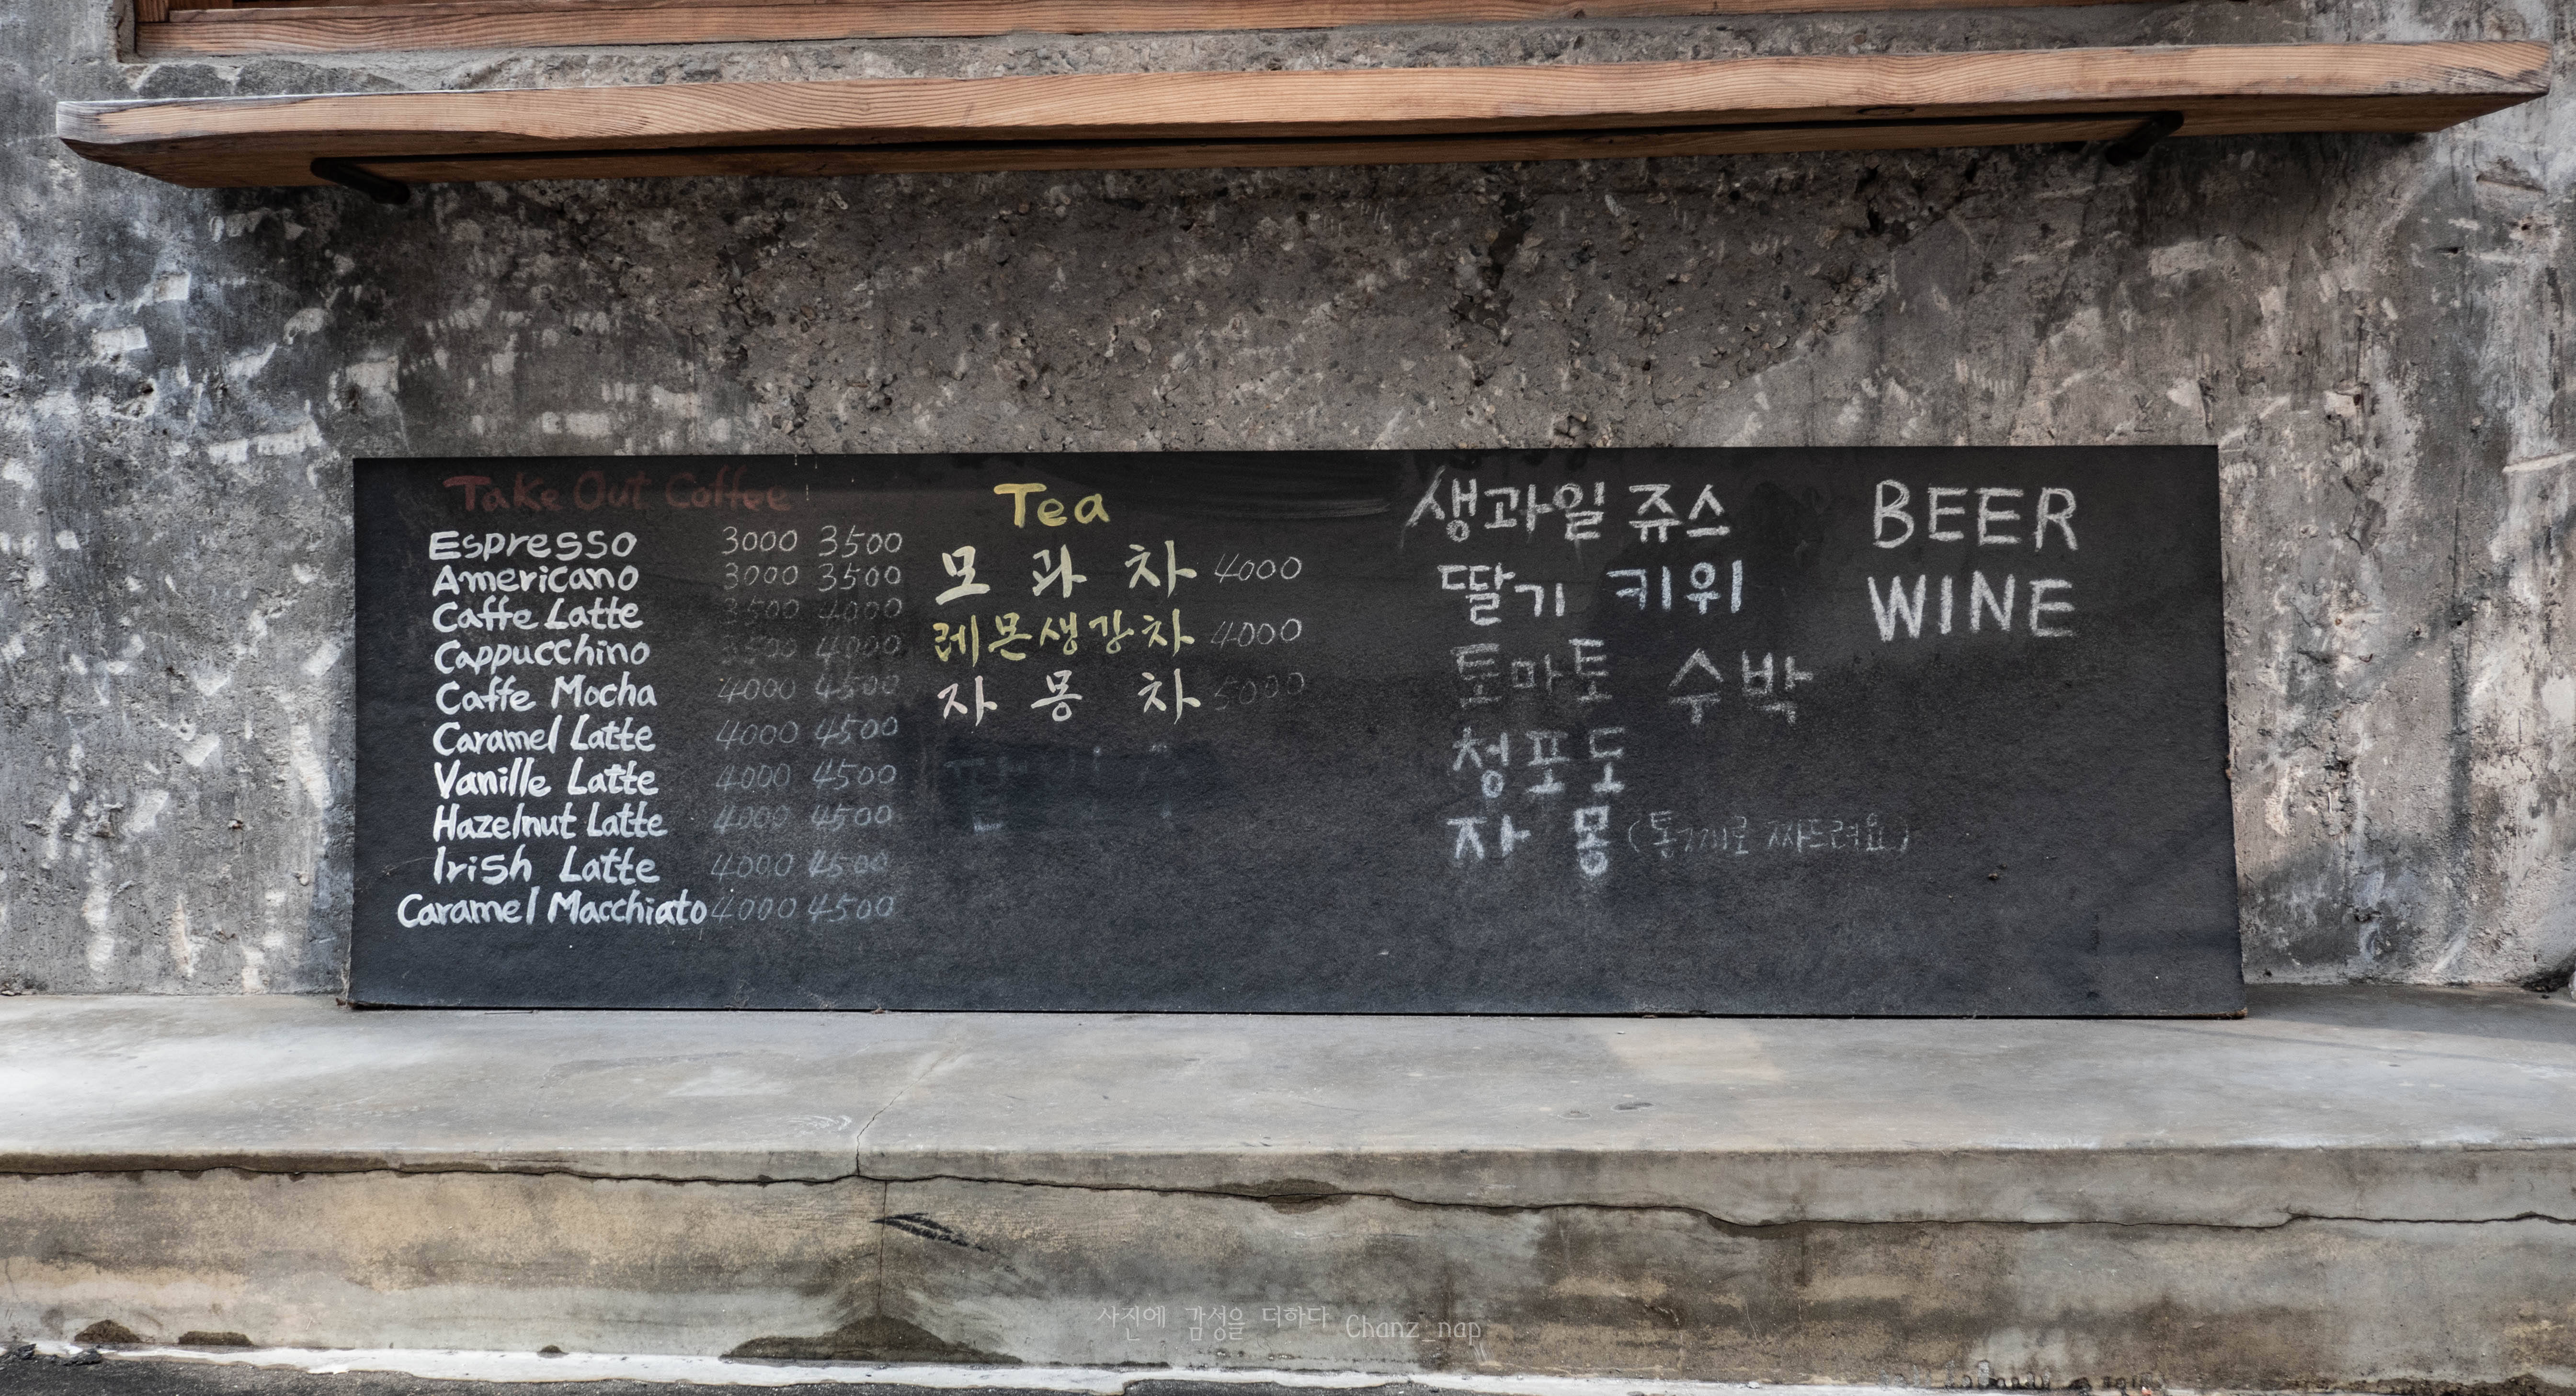 Take Out Coffee
Espresso 3000 3500
Americano 3000 3500
Caffe Latte 3500 4000
Cappucchino 3500 4000
Caffe Mocha 4000 4500
Caramel Latte 4000 4500
Vanille Latte 4000 4500
Hazelnut Latte 4000 4500
Irish Latte 4000 4500
Caramel Macchiato 4000 4500
Tea
모과차 4000
레몬생강차 4000
자몽차 5000
생과일 쥬스
딸기 키위
토마토 수박
청포도
자몽 (통1개로 짜드려요)
BEER
WINE
사진에 감성을 더하다 Chanz_nap